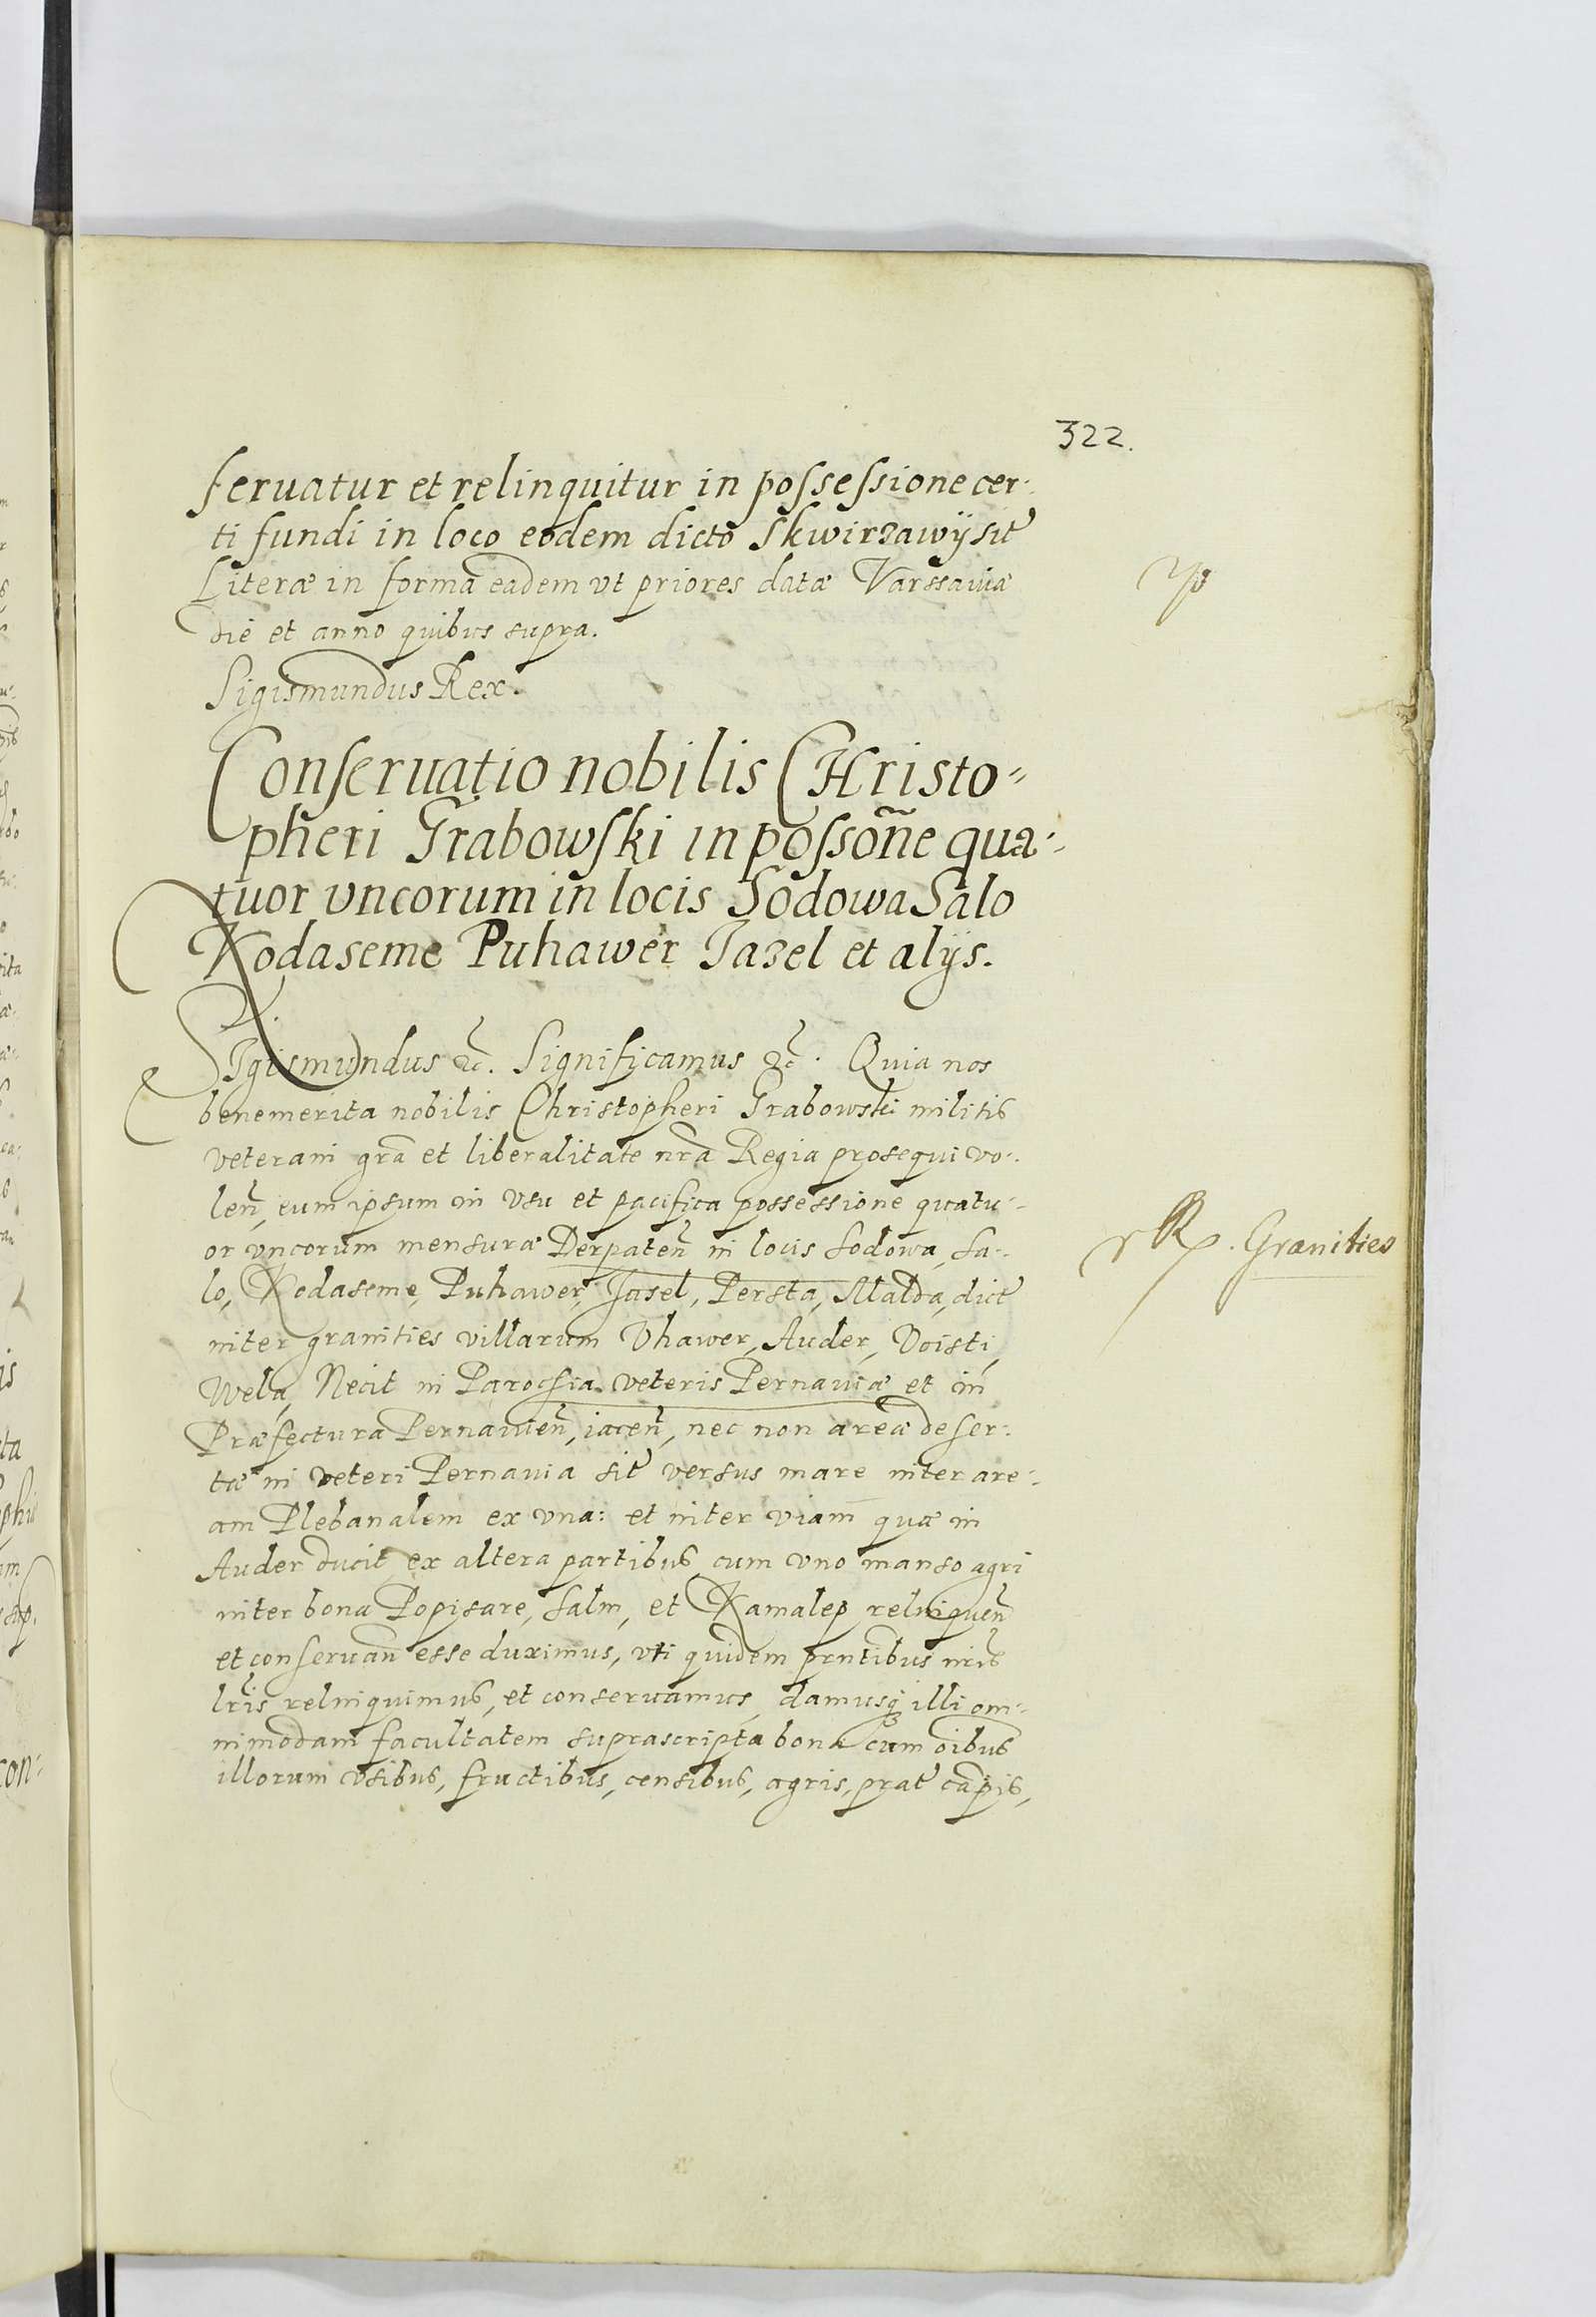 322.
seruatur et relinquitur in possessione cer-
ti fundi in loco eodem dicto Skwirzawÿ sit
Literæ in forma eadem vt priores datæ Varssauiæ
die et anno quibus supra.
Sigismundus Rex.
Conseruatio nobilis CHristo-
pheri Grabowski in possone qua-
tuor vncorum in locis Sodowa Salo
Kodaseme Puhawer Jazel et alijs.
SIgismundus &c. Significamus &c. Quia nos
benemerita nobilis Christopheri Grabowski militis
veterani gra et liberalitate nra Regia prosequi vo-
len, eum ipsum in vsu et pacifica possessione quatu-
or vncorum mensuræ Derpaten in locis Sodowa, Sa-
lo, Kodaseme, Puhawer, Jasel, Persta, Malda, dict
inter granities villarum Vhawer, Auder, Voisti,
Wela, Necit in Parochia veteris Pernauiæ et in
Præfectura Pernauien, iacen, nec non areæ deser-
tæ in veteri Pernauia sit versus mare inter are-
am Plebanalem ex vna: et inter viam quæ in
Auder ducit ex altera partibus cum vno manso agri
inter bona Popisare, Salm, et Kamalep relinquen
et conseruan esse duximus, vti quidem prntibus nris
lris relinquimus, et conseruamus, damusq illi om-
nimodam facultatem suprascripta bona cum oibus
illorum vsibus, fructibus, censibus, agris, prat capis,
Granities